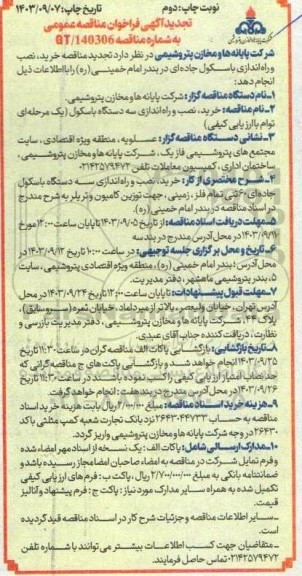 نوبت چاپ: دوم
تاریخ چاپ: ۱۴۰۳/۰۹/۰۷
تجدید آگهی فراخوان مناقصه عمومی
به شماره مناقصه GT/140306
شرکت پایانه ها و مخازن پتروشیمی در نظر دارد تجدید مناقصه خرید، نصب
و راه اندازی باسکول جاده ای در بندر امام خمینی (ره) را با اطلاعات ذیل
انجام دهد:
۱-نام دستگاه مناقصه گزار: شرکت پایانه ها و مخازن پتروشیمی.
۲-نام مناقصه: خرید، نصب و راه اندازی سه دستگاه باسکول (یک مرحله ای
توام با ارزیابی کیفی)
۳-نشانی دستگاه مناقصه گزار: عسلویه، منطقه ویژه اقتصادی، سایت
مجتمع های پتروشیمی فاز یک، شرکت پایانه ها و مخازن پتروشیمی،
ساختمان اداری، کمیسیون معاملات تلفن ۰۲۱۴۲۵۷۹۴۷۲
۴-شرح مختصری از کار: خرید، نصب و راه اندازی سه دستگاه باسکول
جاده ای ۶۰ تنی تمام فلز، زمینی، جهت توزین کامیون و تریلر به شرح مندرج
در اسناد مناقصه در بندر امام خمینی (ره).
۵-مهلت دریافت اسناد مناقصه: از تاریخ ۱۴۰۳/۰۹/۰۵ تا پایان ساعت ۱۲:۰۰ مورخ
۱۴۰۳/۰۹/۱۱ در محل آدرس مندرج در بند سه
۶-تاریخ و محل برگزاری جلسه توجیهی: در ساعت ۱۰:۰۰ تاریخ ۱۴۰۳/۰۹/۱۲ در
محل آدرس: بندر امام خمینی (ره)، منطقه ویژه اقتصادی پتروشیمی، سایت
۵، بندر پتروشیمی ماهشهر، دفتر مدیریت.
۷-مهلت قبول پیشنهادات: تا پایان ساعت ۱۲:۰۰ تاریخ ۱۴۰۳/۰۹/۲۴ در محل
آدرس تهران، خیابان ولیعصر، بالاتر از میرداماد، خیابان قبادیان
پلاک ۴۴، شرکت پایانه ها و مخازن پتروشیمی، دفتر مدیریت بازرسی و
نظارت، دریافت کننده جناب آقای عبدی
۸-تاریخ بازگشایی: بازگشایی پاکات الف مناقصه گران در ساعت ۱۱:۳۰ تاریخ
۱۴۰۳/۰۹/۲۵ انجام خواهد شد و بازگشایی پاکت های ج مناقصه گرانی که
حد نصاب امتیاز ارزیابی کیفی را کسب نموده باشند در ساعت ۱۱:۳۰ تاریخ
۱۴۰۳/۰۹/۲۶ در محل آدرس مندرج در بند هفت: انجام خواهد گرفت.
۹-هزینه خرید اسناد مناقصه: مبلغ ۲/۰۰۰/۰۰۰ ریال بابت هزینه خرید اسناد
مناقصه به حساب ۲۶۴۳۰۴۴۷۳۳ نزد بانک تجارت شعبه کمپ مثلثی با کد
۲۶۴۳۰ در وجه شرکت پایانه ها و مخازن پتروشیمی واریز گردد.
۱۰-مدارک ارسالی شامل: پاکت الف: یک نسخه از اسناد مهر امضاء شده
و فرم تمایل شرکت در مناقصه به امضاء صاحبان امضاء مجاز رسیده باشد و
ضمانتنامه بانکی به مبلغ ۲/۷۰۰/۰۰۰/۰۰۰ ریال، پاکت ب: فرم های ارزیابی کیفی
تکمیل شده به همراه سایر مدارک مورد نیاز: پاکت ج: فرم پیشنهاد و آنالیز
قیمت.
-سایر اطلاعات مناقصه و جزئیات شرح کار در اسناد مناقصه قید گردیده
است.
-متقاضیان جهت کسب اطلاعات بیشتر می توانند با شماره تلفن
۰۲۱۴۲۵۷۹۴۷۲ تماس حاصل فرمایند.